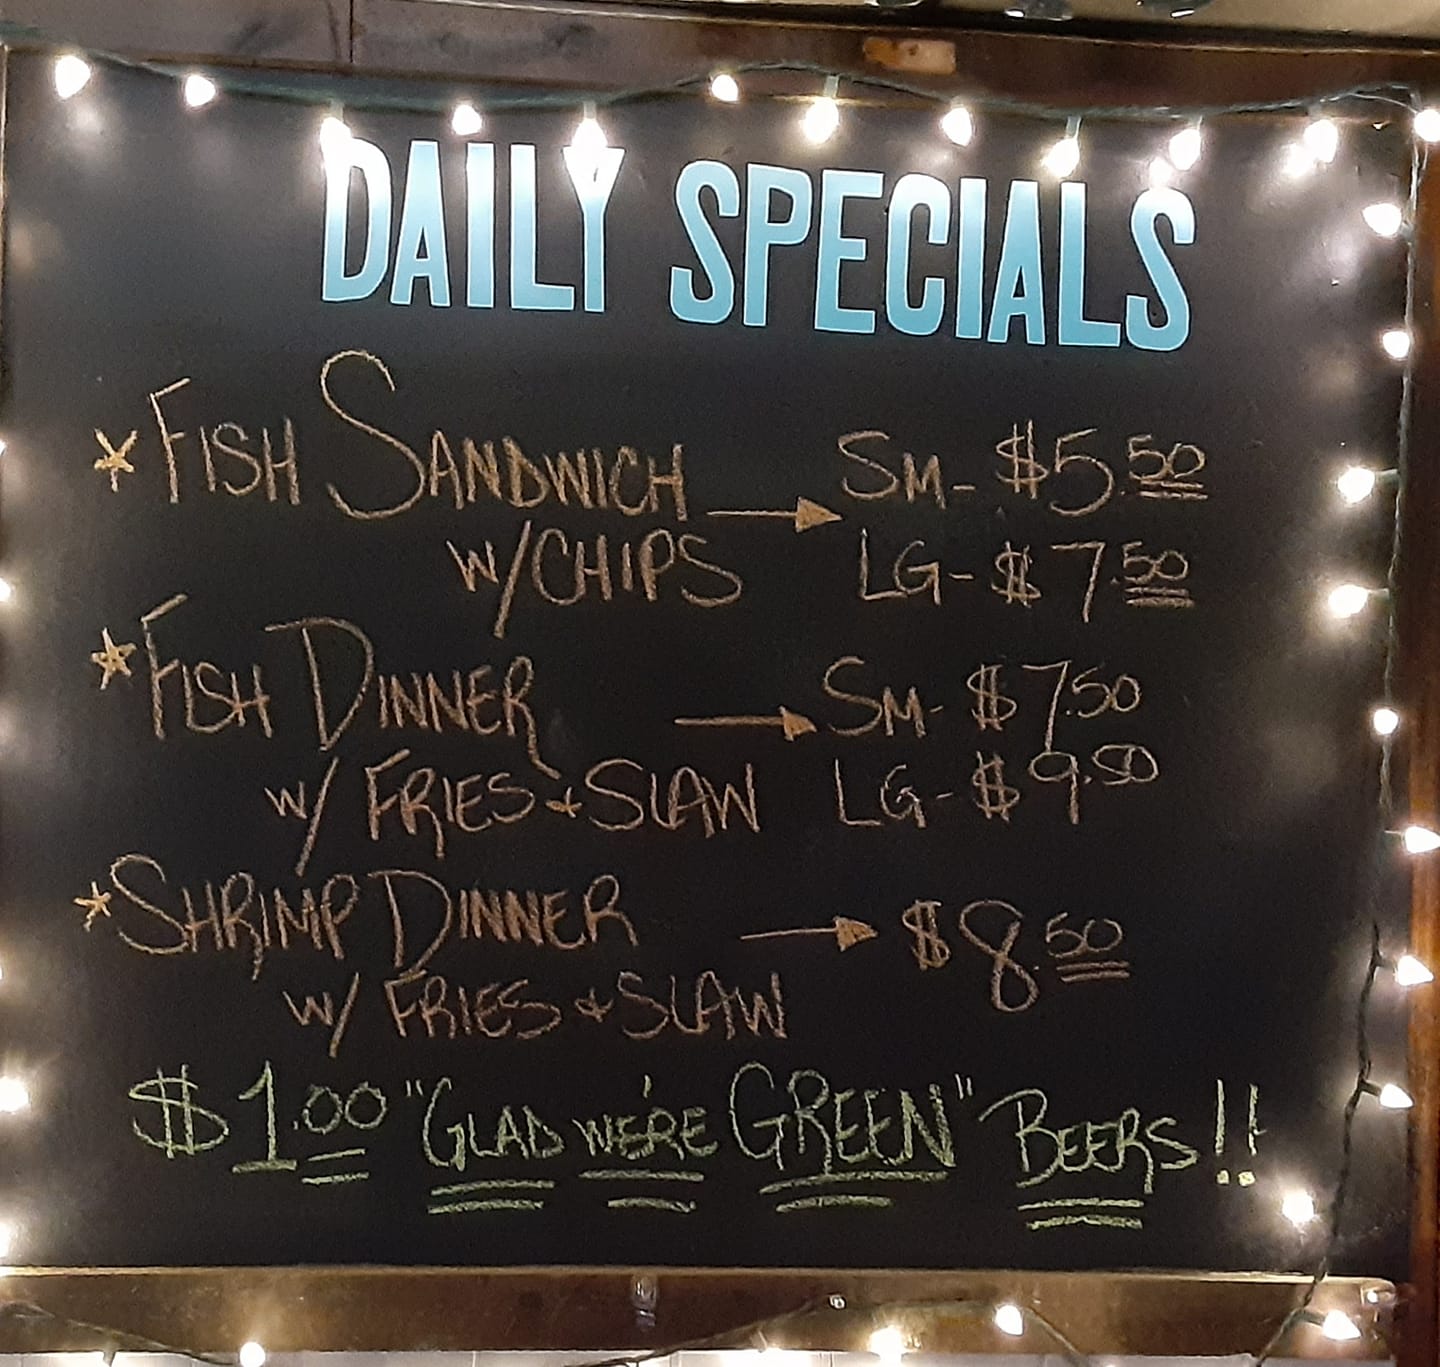 DAILY SPECIALS
*FISH SANDWICH → SM- $5.50
W/CHIPS LG- $7.50
*FISH DINNER → SM- $7.50
W/ FRIES & SLAW LG- $9.50
*SHRIMP DINNER → $8.50
W/ FRIES & SLAW
$1.00 "GLAD WE'RE GREEN" BEERS!!